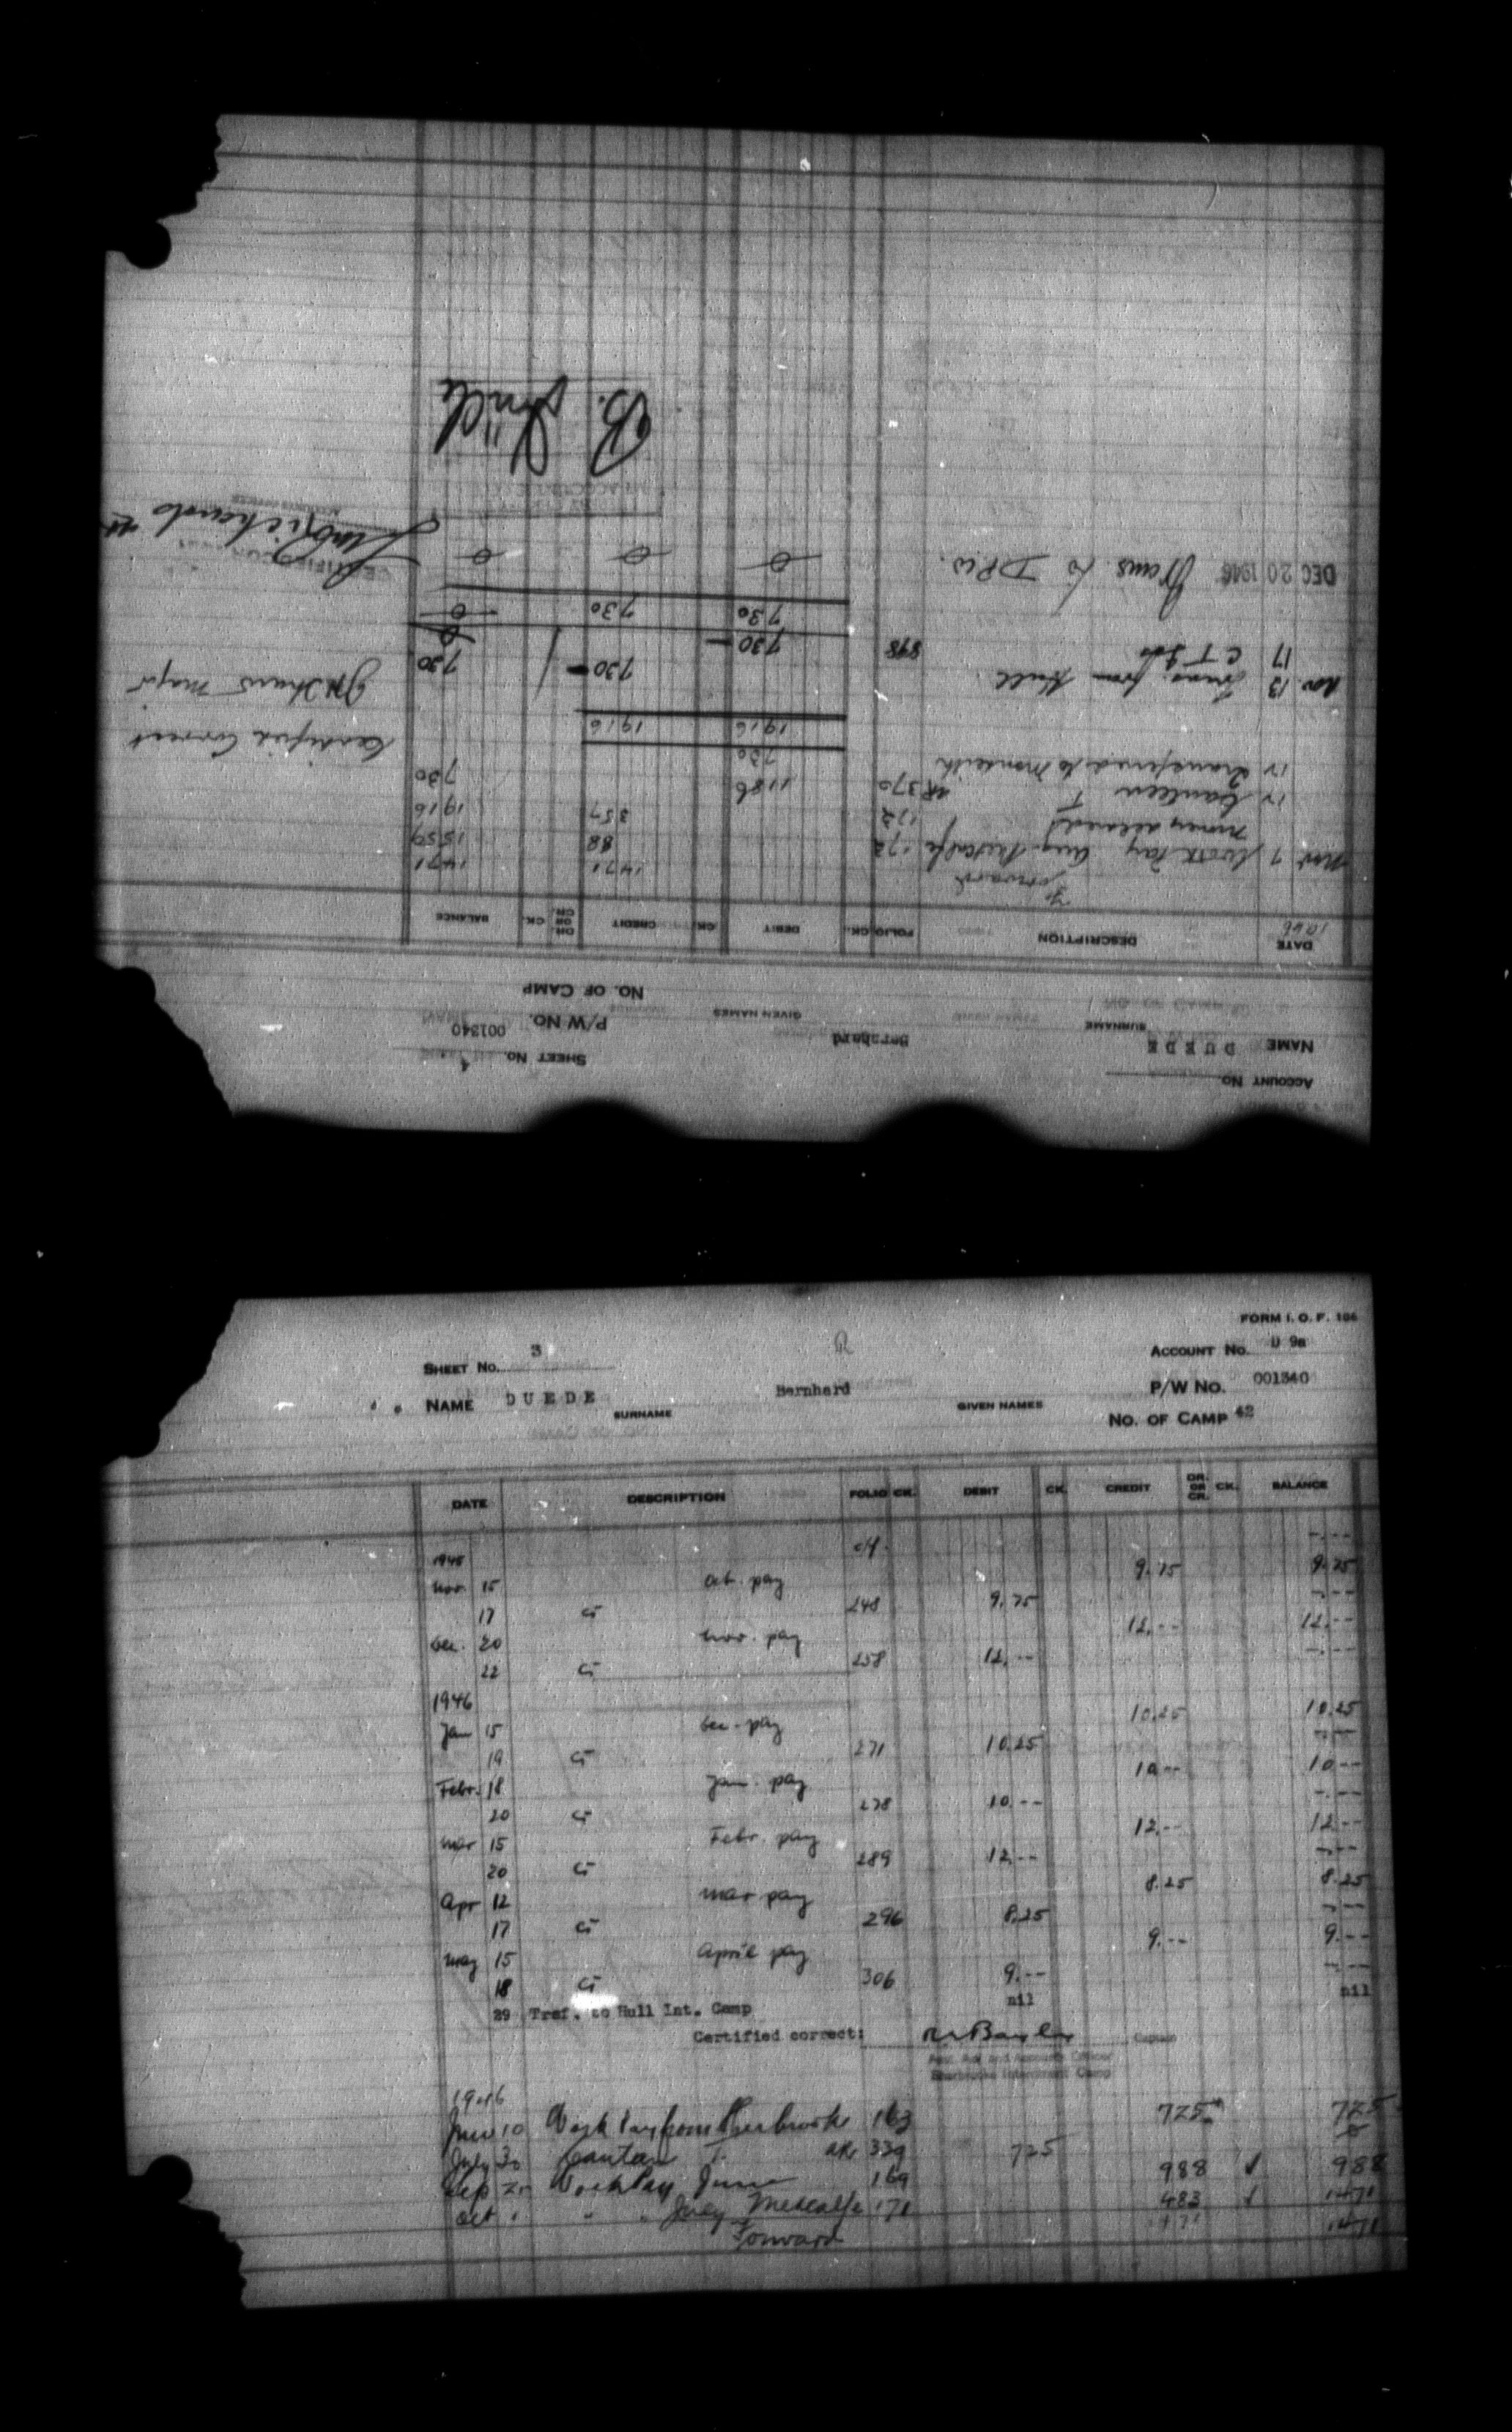 ACCOUNT NO.
SHEET NO. 4
NAME DUEDE Bernhard P/W NO. 001340
SURNAME GIVEN NAMES
NO. OF CAMP
DATE DESCRIPTION FOLIO CK. DEBIT CK. CREDIT DR. OR CR. CK. BALANCE
1946
Forward 1471 1471
Nov 7 Work Pay Aug. Metcalfe 172 88 1559
172 357 1916
12 Canteen T AR 370 1186 730
12 Transferred to Monteith 730
1916 1916
Certified Correct
Nov. 13 Trans. from Hull 730 730
Major
17 C T 898 730 0
730 730 0
DEC 20 1946 Trans to DPW. 0 0 0
CERTIFIED CORRECT
B. Düde
FORM I. O. F. 106
SHEET NO. 3 ACCOUNT NO. D 9a
NAME DUEDE Bernhard P/W NO. 001340
SURNAME GIVEN NAMES
NO. OF CAMP 42
DATE DESCRIPTION FOLIO CK. DEBIT CK. CREDIT DR. OR CR. CK. BALANCE
1945 c/f. -.--
Nov. 15 Oct. pay 9.75 9.75
17 CT 248 9.75 -.--
Dec. 20 Nov. pay 12.-- 12.--
22 CT 258 12.-- -.--
1946
Jan 15 Dec. pay 10.25 10.25
19 CT 271 10.25 -.--
Febr. 18 Jan. pay 10.-- 10.--
20 CT 278 10.-- -.--
Mar 15 Febr. pay 12.-- 12.--
20 CT 289 12.-- -.--
Apr 12 Mar pay 8.25 8.25
17 CT 296 8.25 -.--
May 15 April pay 9.-- 9.--
18 CT 306 9.-- -.--
29 Trsf. to Hull Int. Camp nil nil
Certified correct: Captain
Sherbrooke Internment Camp
1946
June 10 Work Pay from Sherbrooke 163 725 725
July 30 Canteen T. AR 339 725 0
Sep 25 Work Pay June 169 988 988
Oct 1 " " July Metcalfe 171 483 1471
Forward 1471 1471